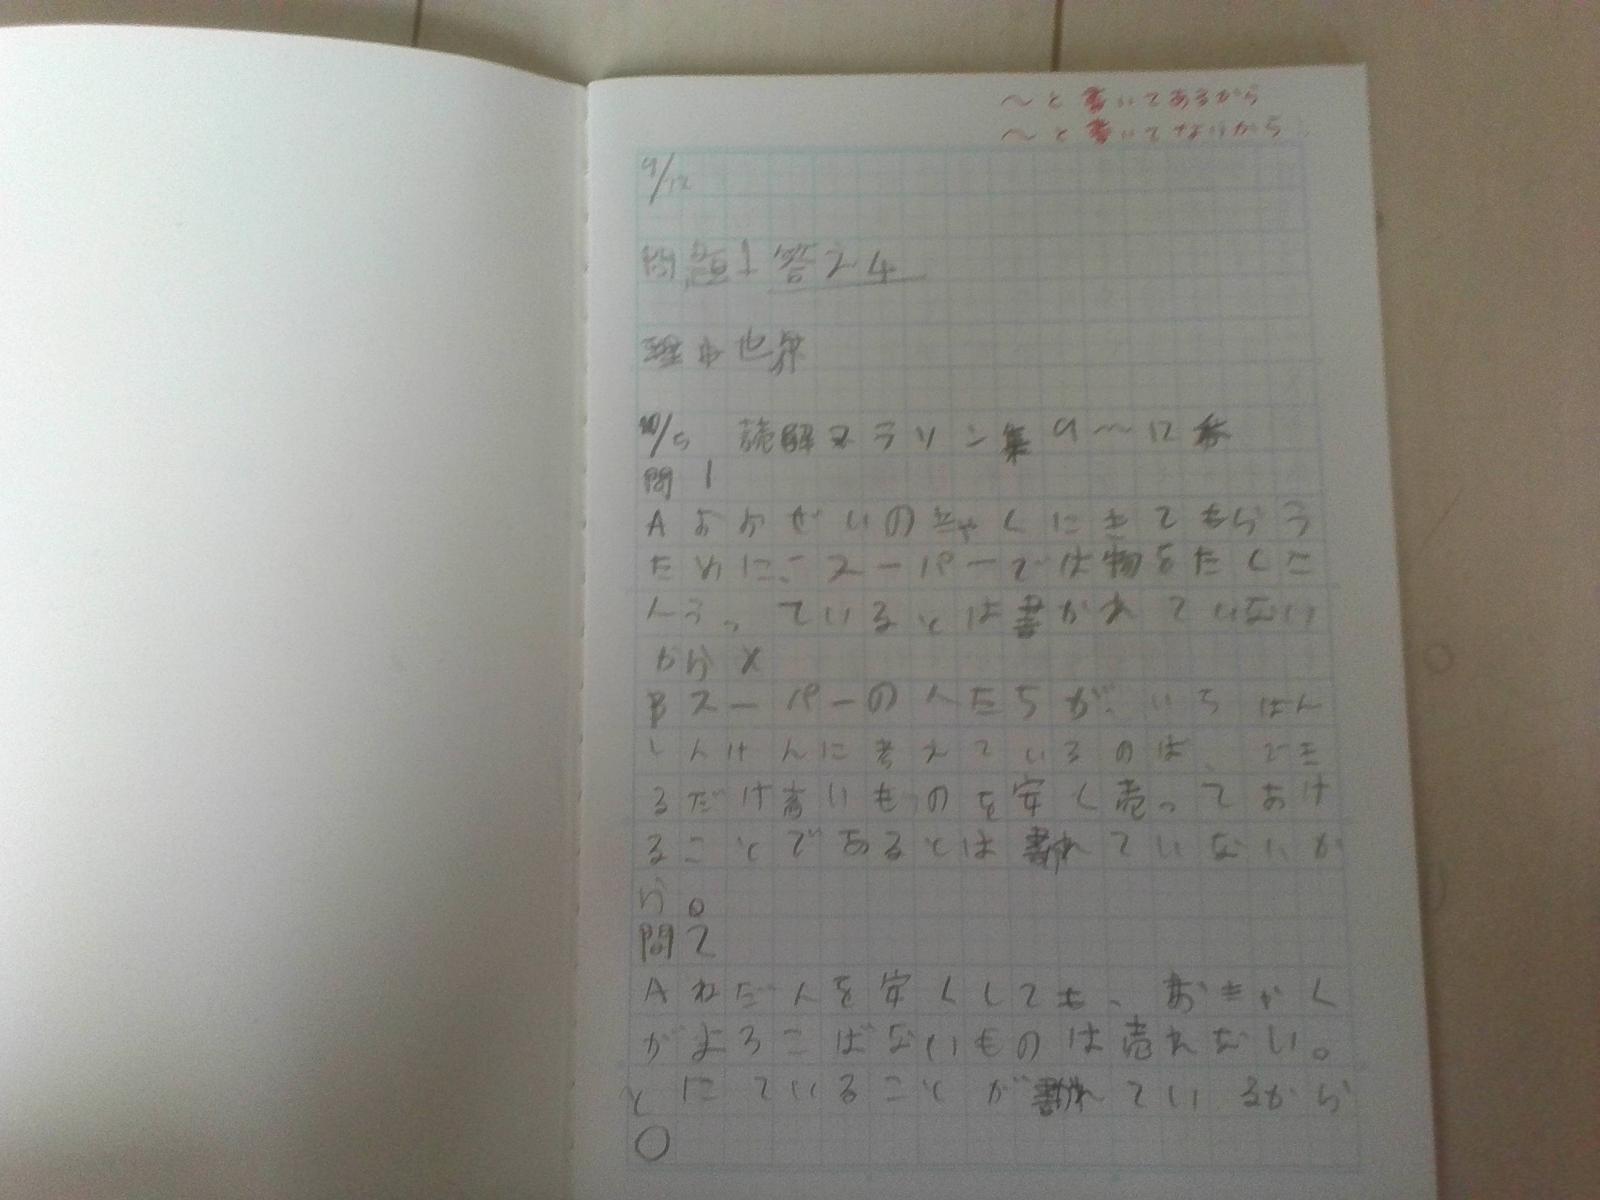 〜と書いてあるから
〜と書いてないから
9/12
問題1 答え4
理由 世界
10/5 読解マラソン集9〜12番
問1
Aおおぜいのきゃくにきてもらう
ために、スーパーでは物をたくさ
んうっているとは書かれていない
から×
Bスーパーの人たちが、いちばん
しんけんに考えているのは、でき
るだけ高いものを安く売ってあげ
ることであるとは書れていないか
ら。
問2
Aねだんを安くしても、おきゃく
がよろこばないものは売れない。
とにていることが書れているから
○